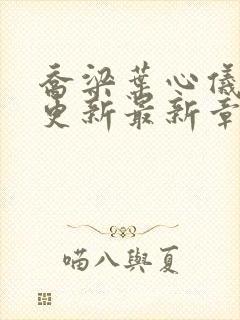 喬梁葉心儀
更新最新章
喵八與夏